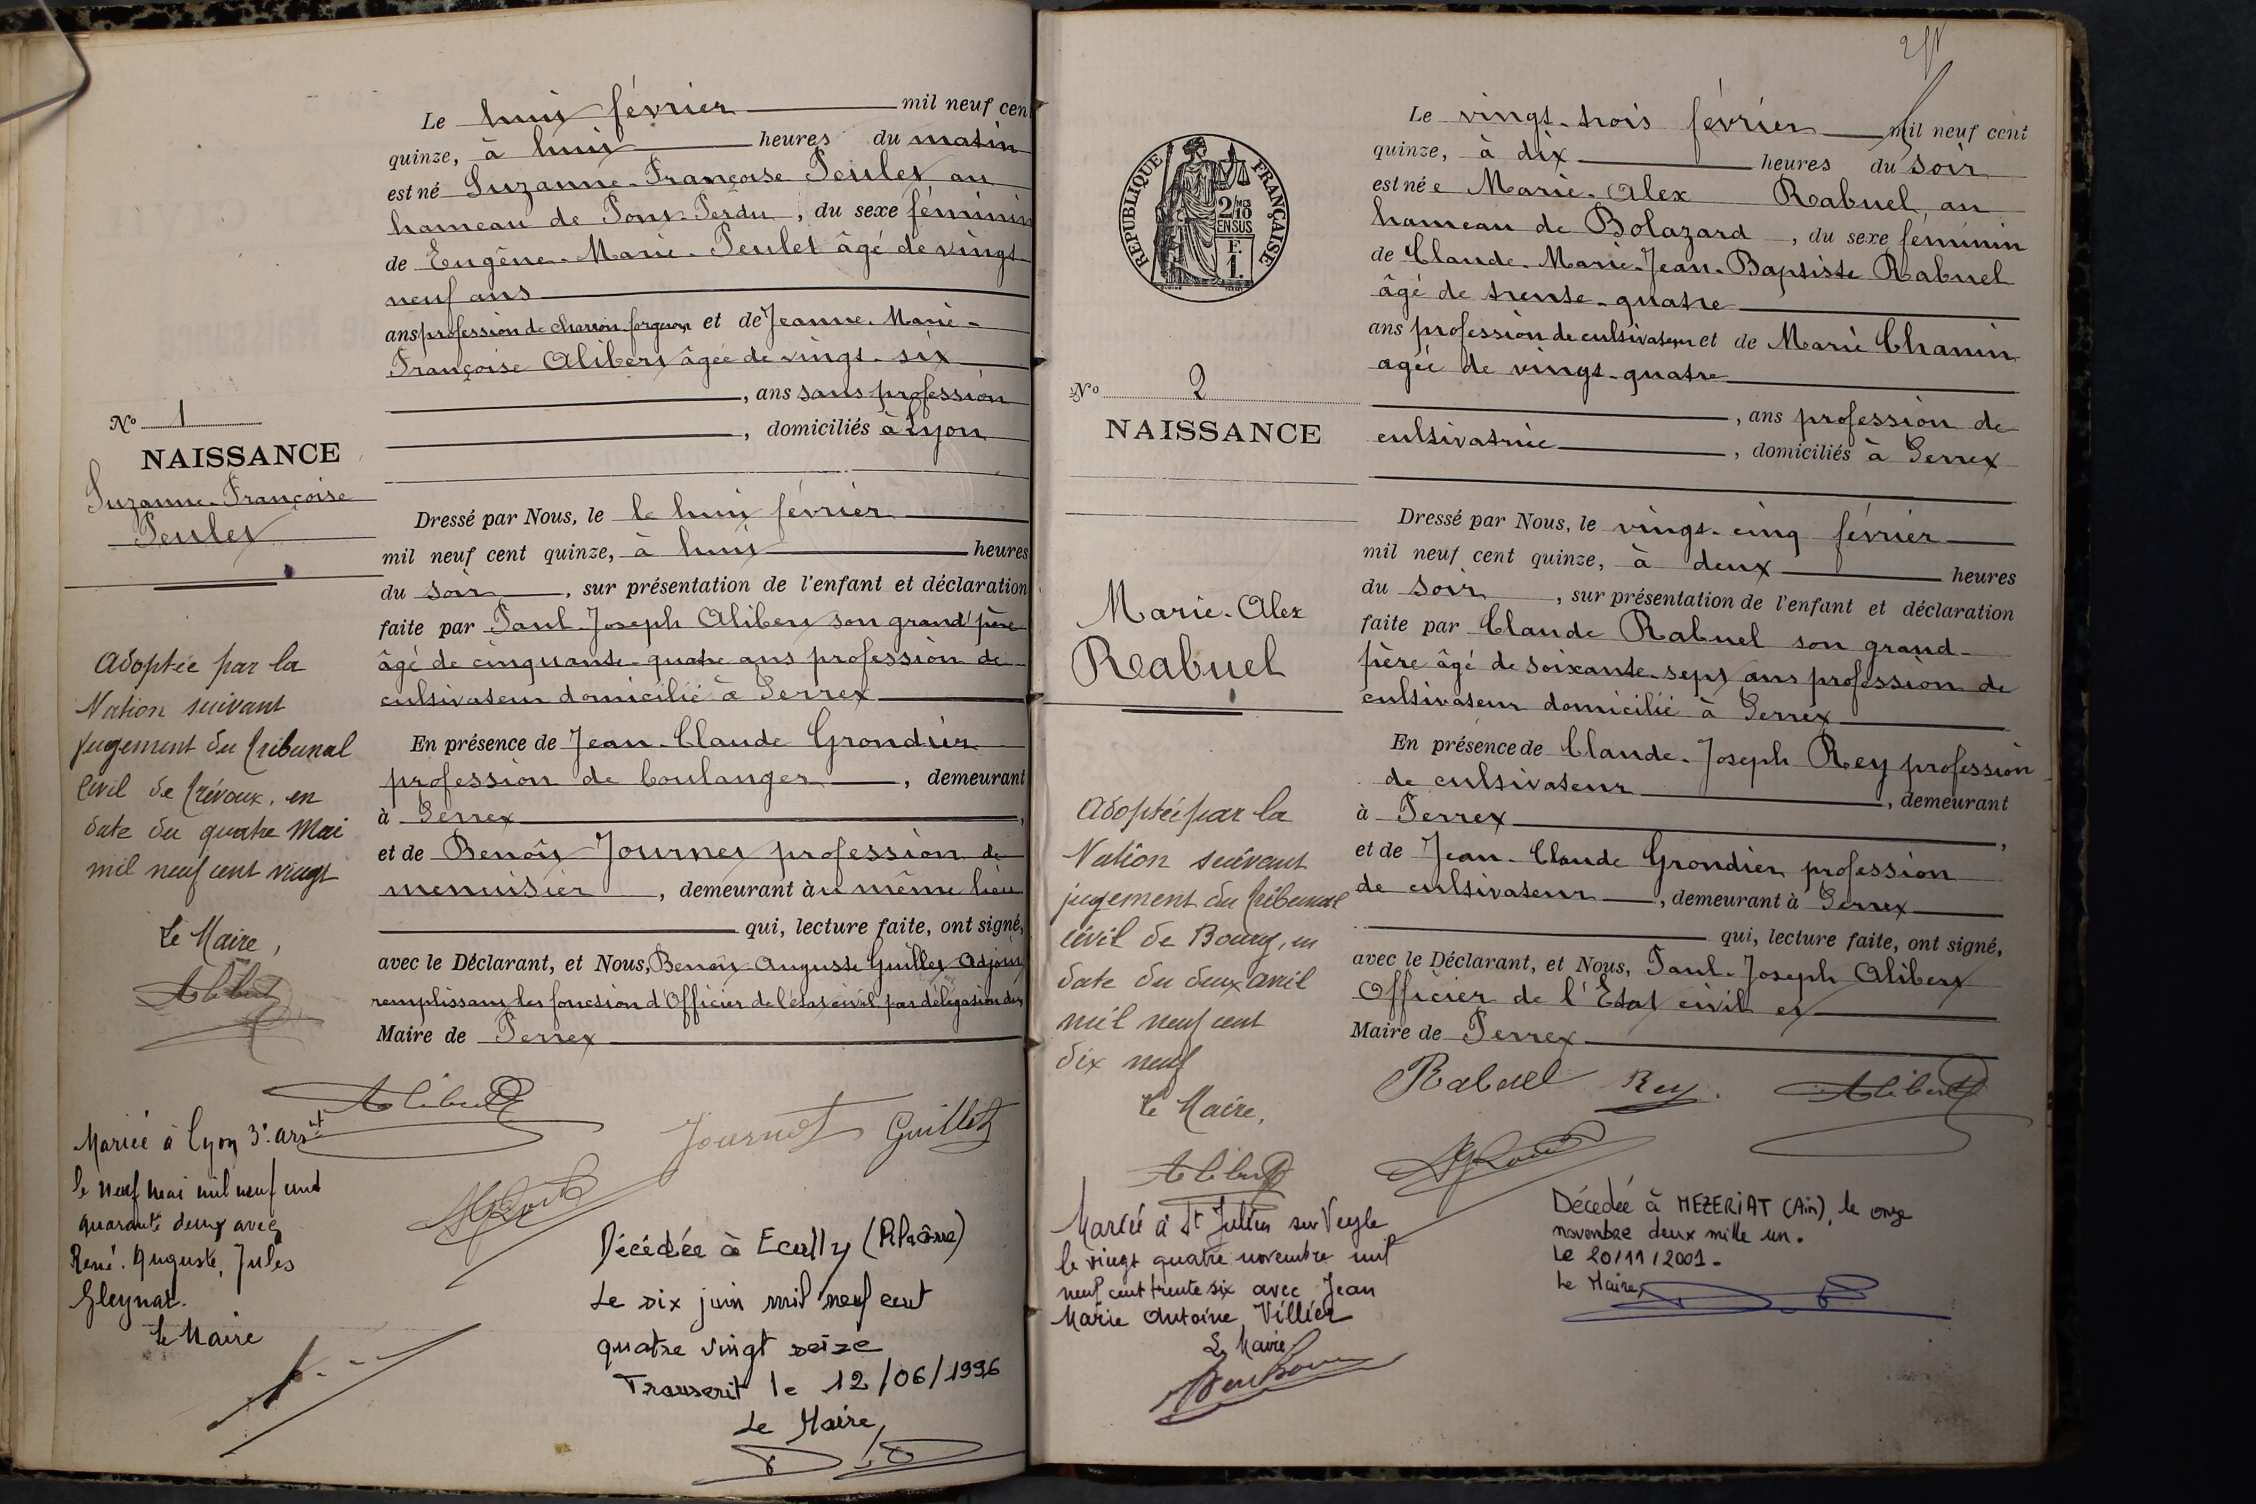 Le huit février mil neuf cen
quinze, à huit heures du matin
est né Suzanne-Françoise Peulet au
hameau de Pont-Perdu, du sexe féminin
de Eugène-Marie-Peulet âgé de vingt
neuf ans
ans profession de charron forgeron et de Jeanne-Marie-
Françoise Alibert âgée de vingt-six
, ans sans profession
, domiciliés à Lyon
No 1
NAISSANCE
Suzanne-Françoise
Peulet
Dressé par Nous, le le huit février
mil neuf cent quinze, à huit heures
du soir, sur présentation de l'enfant et déclaration
faite par Paul-Joseph Alibert son grand'père
âgé de cinquante-quatre ans profession de
cultivateur domicilié à Perrex
En présence de Jean-Claude Grondier
profession de boulanger, demeurant
à Perrex,
et de Benoît Journet profession de
menuisier, demeurant au même lieu
qui, lecture faite, ont signé,
avec le Déclarant, et Nous, Benoît Auguste Guillet Adjoint
remplissant les fonction d'Officier de l'état civil par délégation du
Maire de Perrex
Adoptée par la
Nation suivant
jugement du Tribunal
Civil de Trévoux, en
date du quatre Mai
mil neuf cent vingt
Le Maire,
Alibert
Alibert
Journet Guillet
Mariée à Lyon 3e arrnt
le neuf mai mil neuf cent
quarante deux avec
René, Auguste, Jules
Gleynat.
Le Maire
Décédée à Ecully (Rhône)
Le six juin mil neuf cent
quatre vingt seize
Transcrit le 12/06/1996
Le Maire,
Le vingt-trois février mil neuf cent
quinze, à dix heures du soir
est née Marie-Alex Rabuel au
hameau de Bolazard, du sexe féminin
de Claude-Marie-Jean-Baptiste Rabuel
âgé de trente-quatre
ans profession de cultivateur et de Marie Chanin
agée de vingt-quatre
, ans profession de
cultivatrice, domiciliés à Perrex
REPUBLIQUE FRANÇAISE
2/10 MES
EN SUS
F.
1.
No 2
NAISSANCE
Marie-Alex
Rabuel
Dressé par Nous, le vingt-cinq février
mil neuf cent quinze, à deux heures
du soir, sur présentation de l'enfant et déclaration
faite par Claude Rabuel son grand-
père âgé de soixante-sept ans profession de
cultivateur domicilié à Perrex
En présence de Claude-Joseph Rey profession
de cultivateur, demeurant
à Perrex,
et de Jean-Claude Grondier profession
de cultivateur, demeurant à Perrex
qui, lecture faite, ont signé,
avec le Déclarant, et Nous, Paul-Joseph Alibert
Officier de l'Etat civil et
Maire de Perrex
Adoptée par la
Nation suivant
jugement du Tribunal
civil de Bourg, en
date du deux avril
mil neuf cent
dix neuf
Le Maire,
Alibert
Rabuel Rey Alibert
Mariée à St Julien sur Veyle
le vingt quatre novembre mil
neuf cent trente six avec Jean
Marie Antoine Villier
Le Maire
Décédée à MEZERIAT (Ain), le onze
novembre deux mille un.
Le 20/11/2001.
Le Maire,